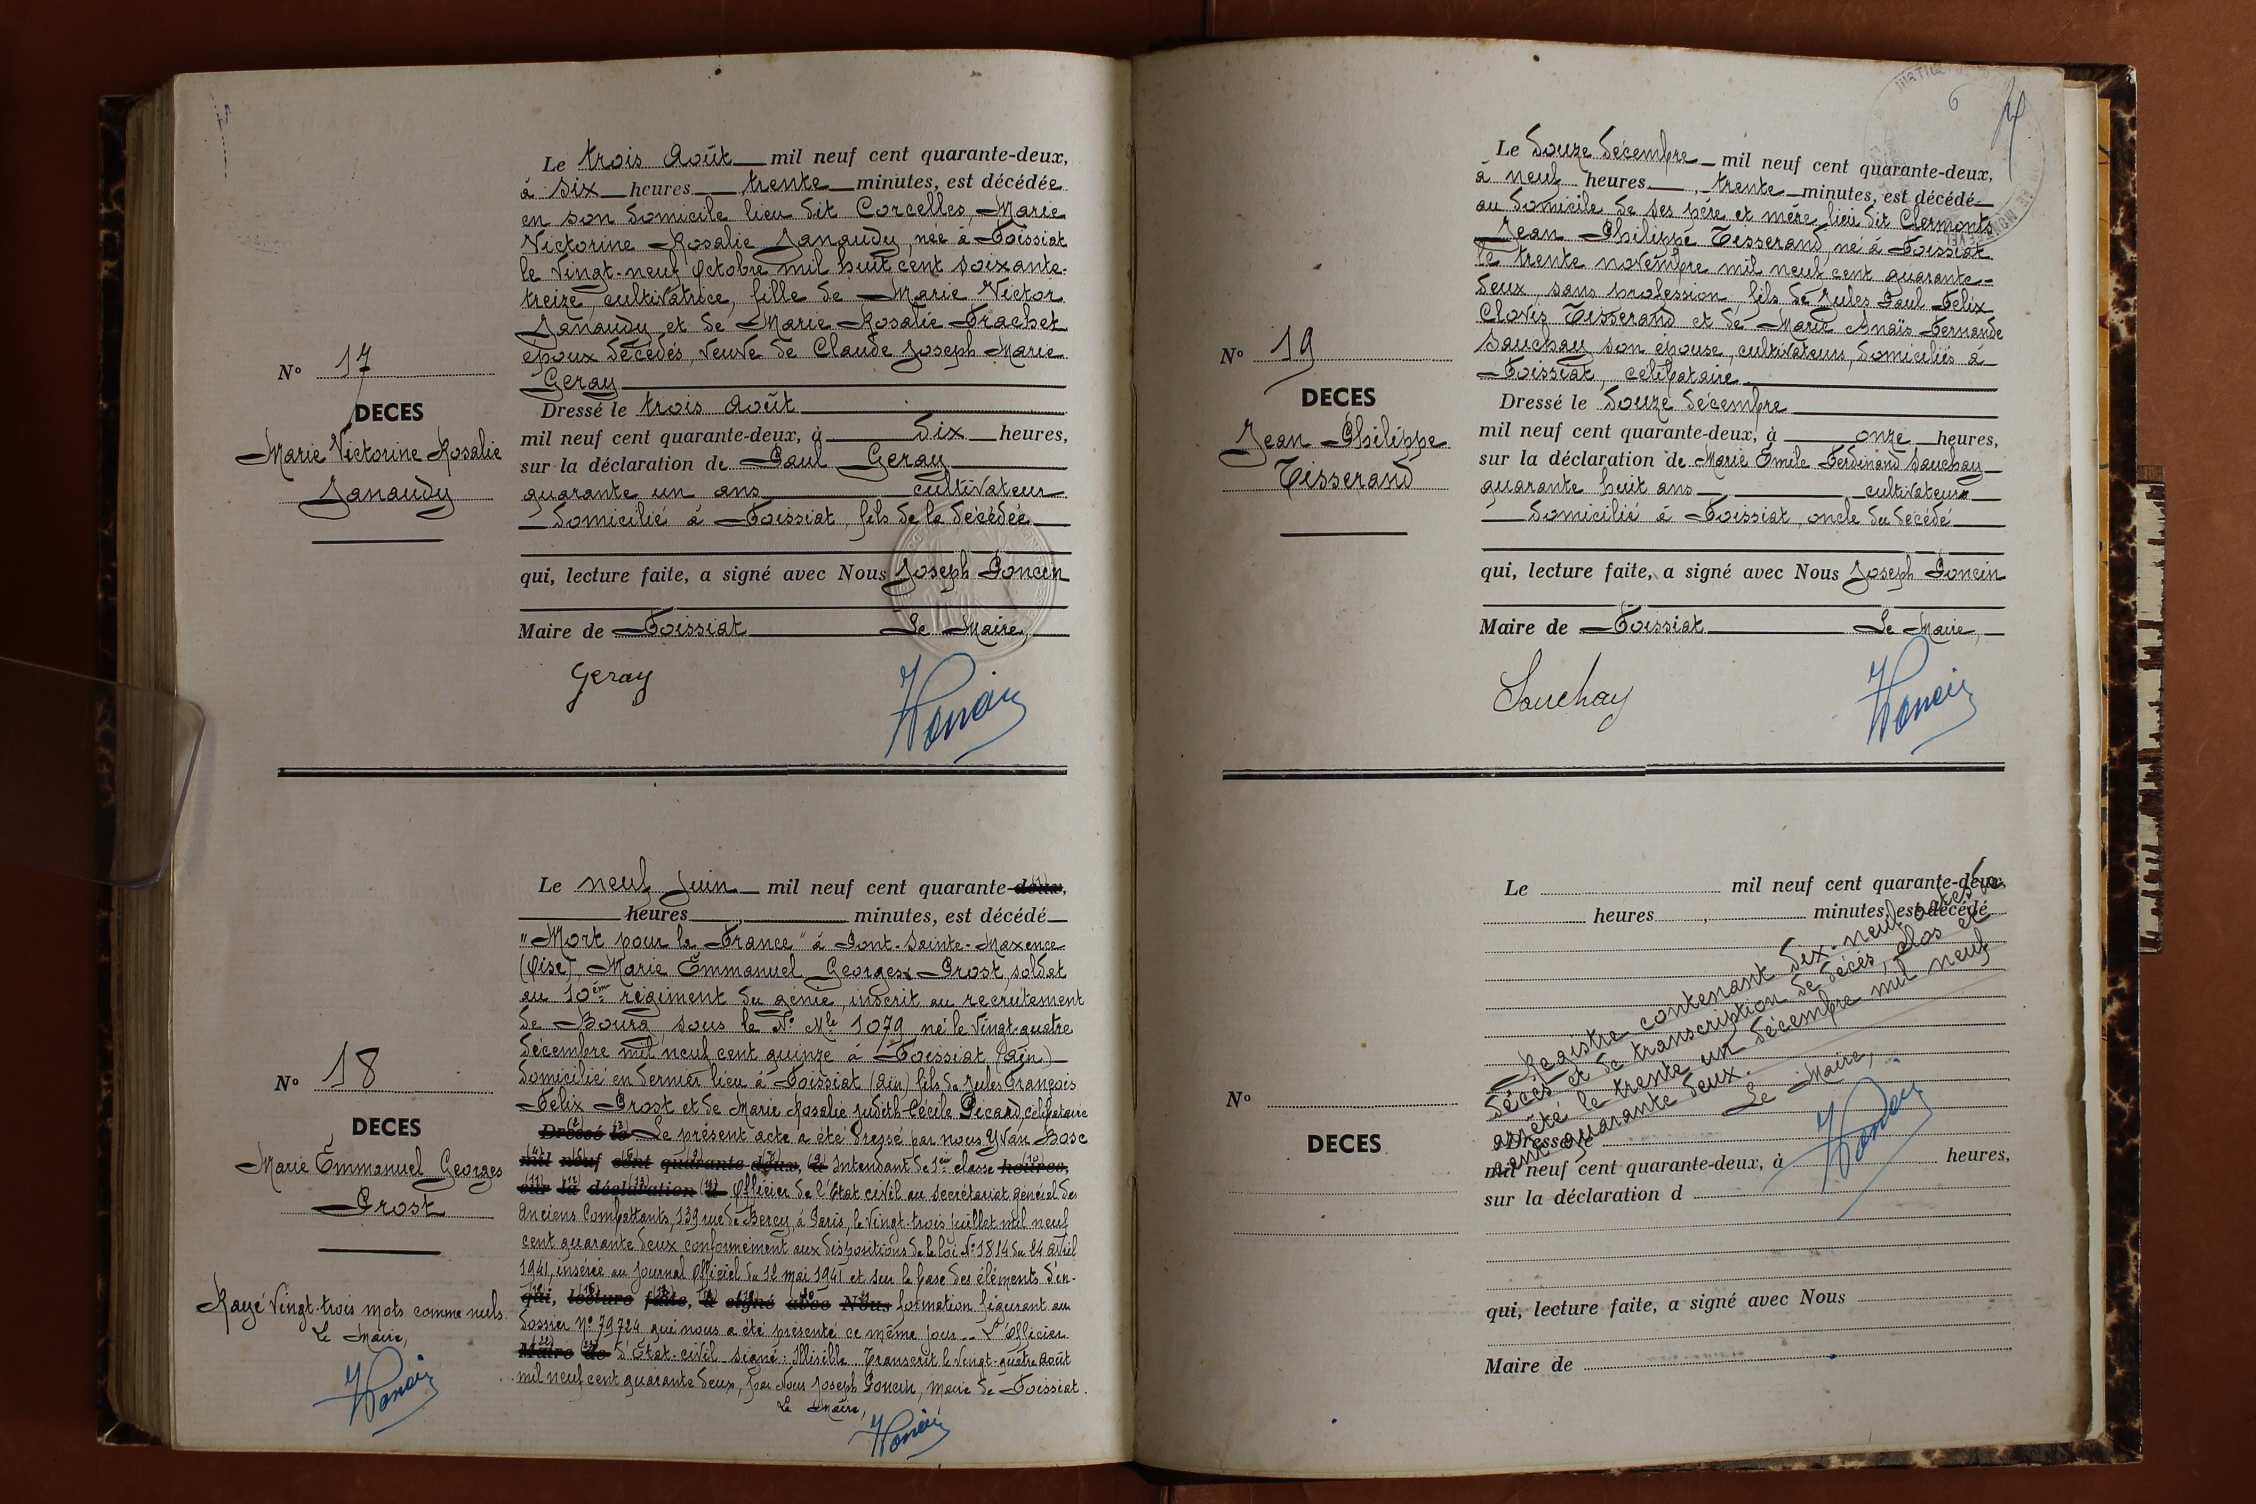 Le trois Août mil neuf cent quarante-deux,
à six heures trente minutes, est décédée
en son domicile lieu dit Corcelles, Marie
Victorine Rosalie Janaudy, née à Foissiat
le vingt-neuf Octobre mil huit cent soixante-
treize, cultivatrice, fille de Marie Victor
Janaudy et de Marie Rosalie Frachet
époux décédés, veuve de Claude Joseph Marie
Geray
N° 17
DECES
Marie Victorine Rosalie
Janaudy
Dressé le trois Août
mil neuf cent quarante-deux, à dix heures,
sur la déclaration de Paul Geray
quarante un ans cultivateur
domicilié à Foissiat, fils de la décédée
qui, lecture faite, a signé avec Nous Joseph Poncin
Maire de Foissiat Le Maire,
Geray
Poncin
Le neuf Juin mil neuf cent quarante-deux,
heures minutes, est décédé
"Mort pour la France" à Pont-Sainte-Maxence
(Oise) Marie Emmanuel Georges Prost, soldat
au 10ème régiment du génie, inscrit au recrutement
de Bourg sous le N° Mle 1079 né le vingt-quatre
décembre mil neuf cent quinze à Foissiat (Ain)
domicilié en dernier lieu à Foissiat (Ain) fils de Jules François
Félix Prost et de Marie Rosalie Judith Cécile Picard, célibataire
N° 18
DECES
Marie Emmanuel Georges
Prost
Rayé vingt-trois mots comme nuls.
Le Maire,
Poncin
Dressé le Le présent acte a été dressé par nous Yvan Bosc
mil neuf cent quarante-deux, à Intendant de 1ère classe heures,
sur la déclaration d Officier de l'Etat civil au secrétariat général des
Anciens Combattants, 139 rue de Bercy, à Paris, le vingt-trois juillet mil neuf
cent quarante deux conformément aux dispositions de la loi N° 1814 du 24 avril
1941, insérée au Journal Officiel du 12 mai 1941 et sur la base des éléments d'in-
qui, lecture faite, a signé avec Nous formation figurant au
dossier N° 79724 qui nous a été présenté ce même jour. L'Officier
Maire de d'Etat-civil signé: Illisible. Transcrit le vingt-quatre Août
mil neuf cent quarante deux, par Nous Joseph Poncin, Maire de Foissiat.
Le Maire,
Poncin
6
Le douze décembre mil neuf cent quarante-deux,
à neuf heures, trente minutes, est décédé
au domicile de ses père et mère lieu dit Clermonts
Jean Philippe Tisserand, né à Foissiat
le trente novembre mil neuf cent quarante-
deux, sans profession, fils de Jules Paul Felix
Clovis Tisserand et de Marie Anaïs Fernande
Sauchay son épouse, cultivateurs, domiciliés à
Foissiat, célibataire
N° 19
DECES
Jean Philippe
Tisserand
Dressé le douze décembre
mil neuf cent quarante-deux, à onze heures,
sur la déclaration de Marie Emile Ferdinand Sauchay
quarante huit ans cultivateur
domicilié à Foissiat, oncle du décédé
qui, lecture faite, a signé avec Nous Joseph Poncin
Maire de Foissiat Le Maire,
Sauchay
Poncin
Le mil neuf cent quarante-deux,
heures , minutes, est décédé
Registre contenant dix-neuf actes de
décès et de transcription de décès, clos et
arrêté le trente un décembre mil neuf
cent quarante deux.
Le Maire,
Poncin
N°
DECES
Dressé le
mil neuf cent quarante-deux, à heures,
sur la déclaration d
qui, lecture faite, a signé avec Nous
Maire de